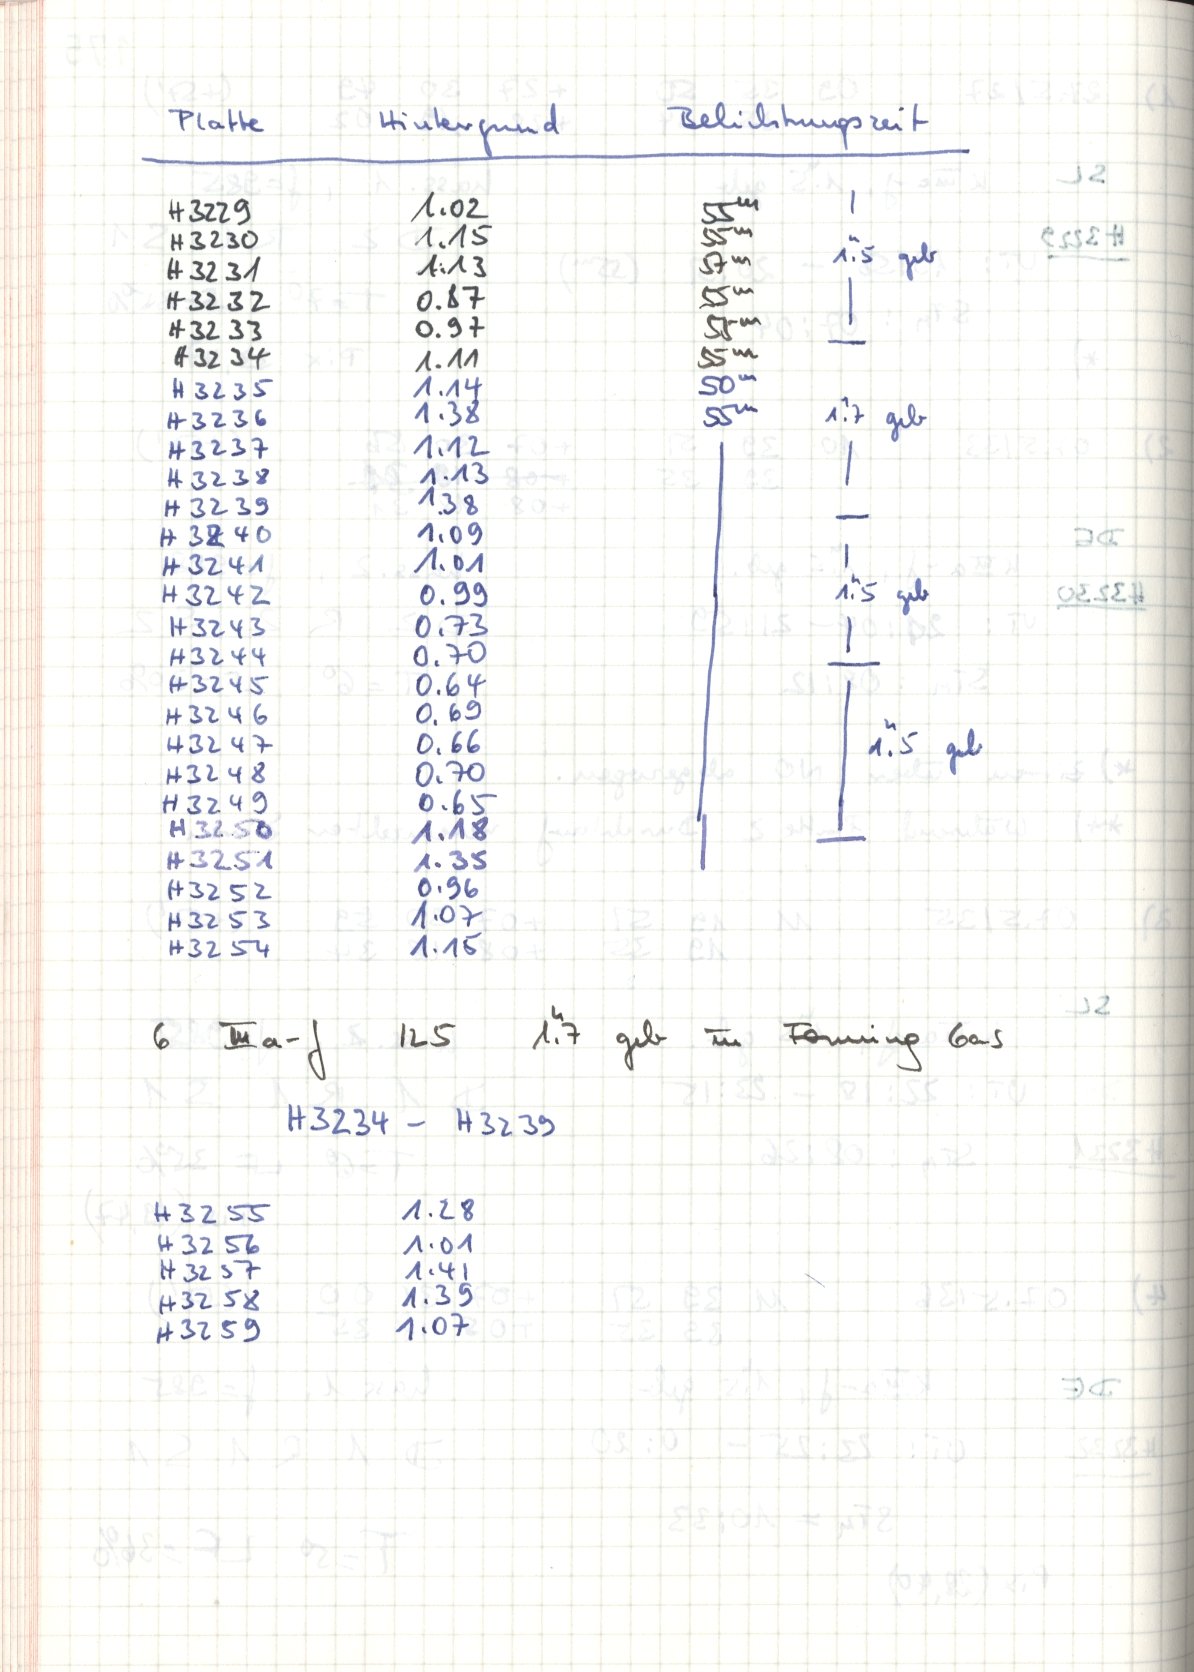 Platte Hintergrund Belichtungszeit
H3229 1.02 55ᵐ
H3230 1.15 55ᵐ
H3231 1.13 57ᵐ 1ʰ.5 geb
H3232 0.87 55ᵐ
H3233 0.97 55ᵐ
H3234 1.11 55ᵐ
H3235 1.14 50ᵐ
H3236 1.38 55ᵐ 1ʰ.7 geb
H3237 1.12
H3238 1.13
H3239 1.38
H3240 1.09
H3241 1.01
H3242 0.99 1ʰ.5 geb
H3243 0.73
H3244 0.70
H3245 0.64
H3246 0.69
H3247 0.66 1ʰ.5 geb
H3248 0.70
H3249 0.65
H3250 1.18
H3251 1.35
H3252 0.96
H3253 1.07
H3254 1.15
6 IIIa-J 125 1ʰ.7 geb in Forming Gas
H3234 – H3239
H3255 1.28
H3256 1.01
H3257 1.41
H3258 1.39
H3259 1.07